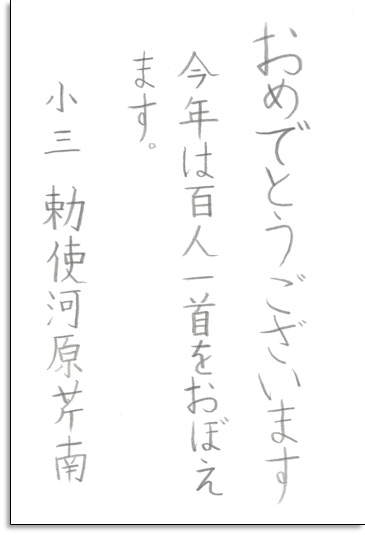 おめでとうございます
今年は百人一首をおぼえ
ます。
小三 勅使河原芹南